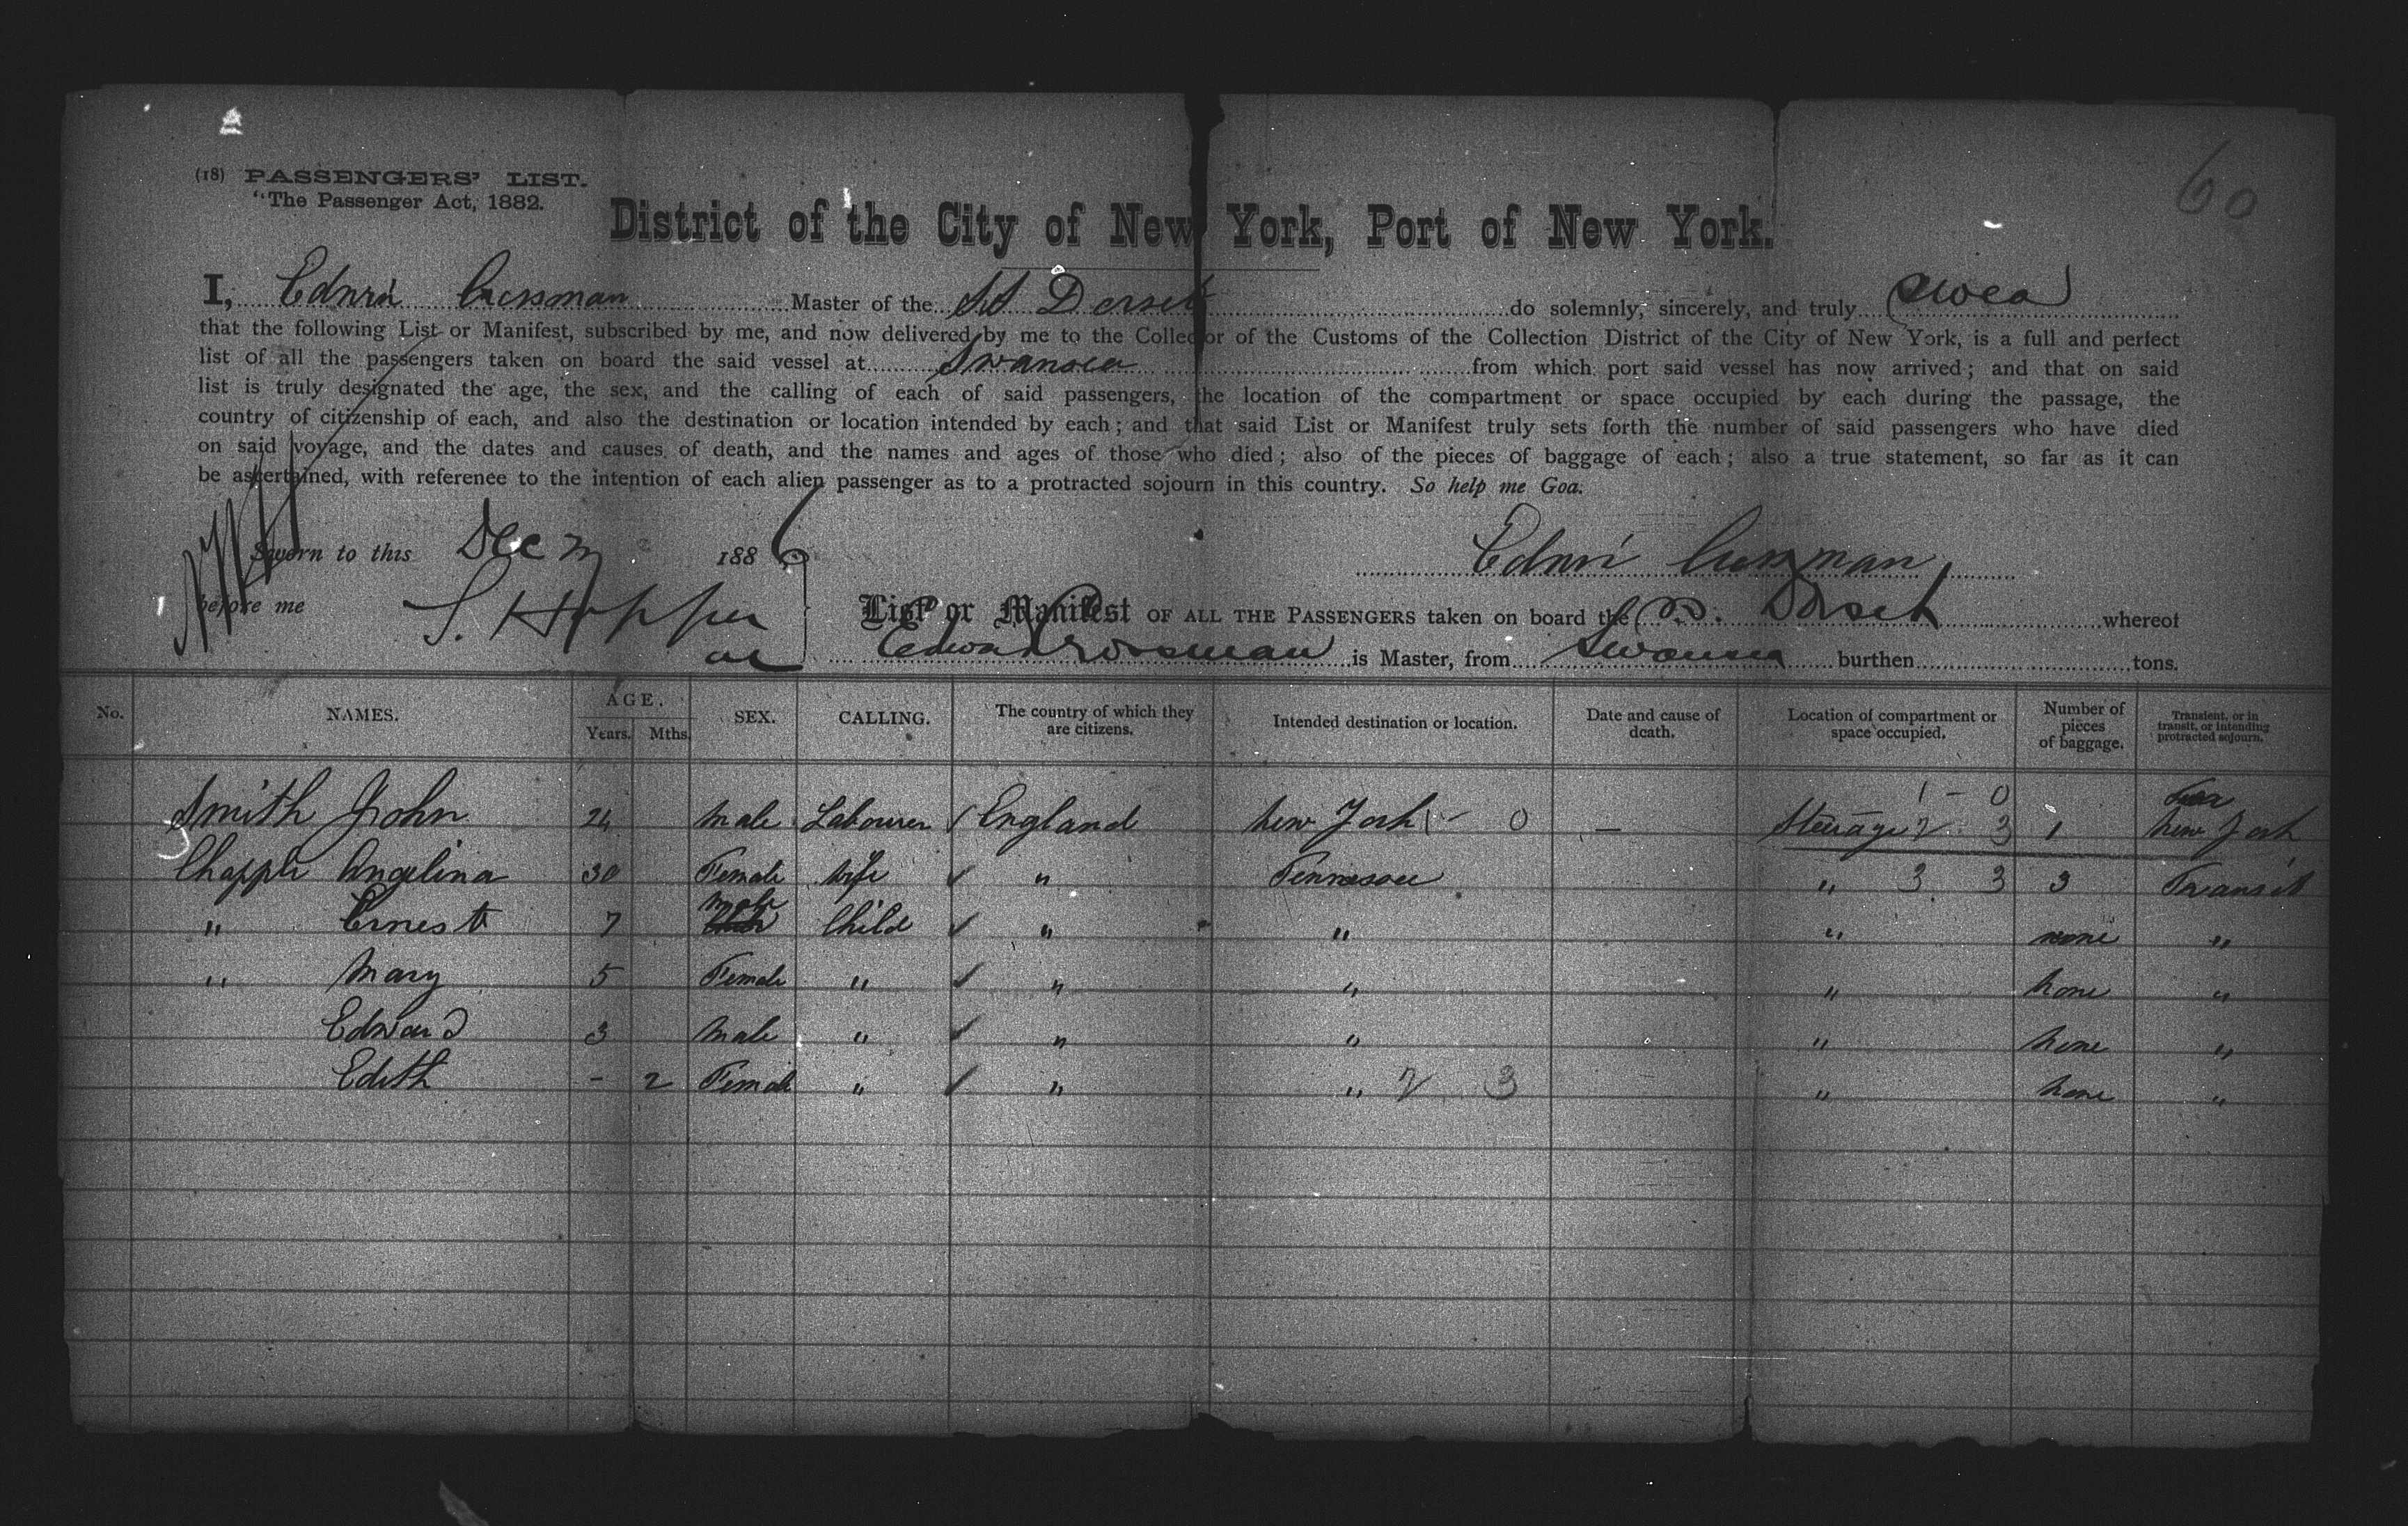 60
(18) PASSENGERS' LIST.
"The Passenger Act, 1882.
District of the City of New York, Port of New York.
I, Edwin Crossman Master of the SS Dorset do solemnly, sincerely, and truly swear
that the following List or Manifest, subscribed by me, and now delivered by me to the Collector of the Customs of the Collection District of the City of New York, is a full and perfect
list of all the passengers taken on board the said vessel at Swansea from which port said vessel has now arrived; and that on said
list is truly designated the age, the sex, and the calling of each of said passengers, the location of the compartment or space occupied by each during the passage, the
country of citizenship of each, and also the destination or location intended by each; and that said List or Manifest truly sets forth the number of said passengers who have died
on said voyage, and the dates and causes of death, and the names and ages of those who died; also of the pieces of baggage of each; also a true statement, so far as it can
be ascertained, with reference to the intention of each alien passenger as to a protracted sojourn in this country. So help me God.
Sworn to this Dec 1886 Edwin Crossman
before me S. Hopper
List or Manifest OF ALL THE PASSENGERS taken on board the SS. Dorset whereof
Edward Crossman is Master, from Swansea burthen tons.
No. NAMES. AGE. Years. Mths. SEX. CALLING. The country of which they are citizens. Intended destination or location. Date and cause of death. Location of compartment or space occupied. Number of pieces of baggage. Transient, or in transit, or intending protracted sojourn.
1 - 0
Smith John 24 Male Labourer England New York 1 - 0 — Steerage 2 3 1 New York
Chapple Angelina 30 Female Wife " Tennessee " 3 3 3 Transit
" Ernest 7 Male Child " " " none "
" Mary 5 Female " " " " None "
Edward 3 Male " " " " None "
Edith - 2 Female " " " 2 3 " None "